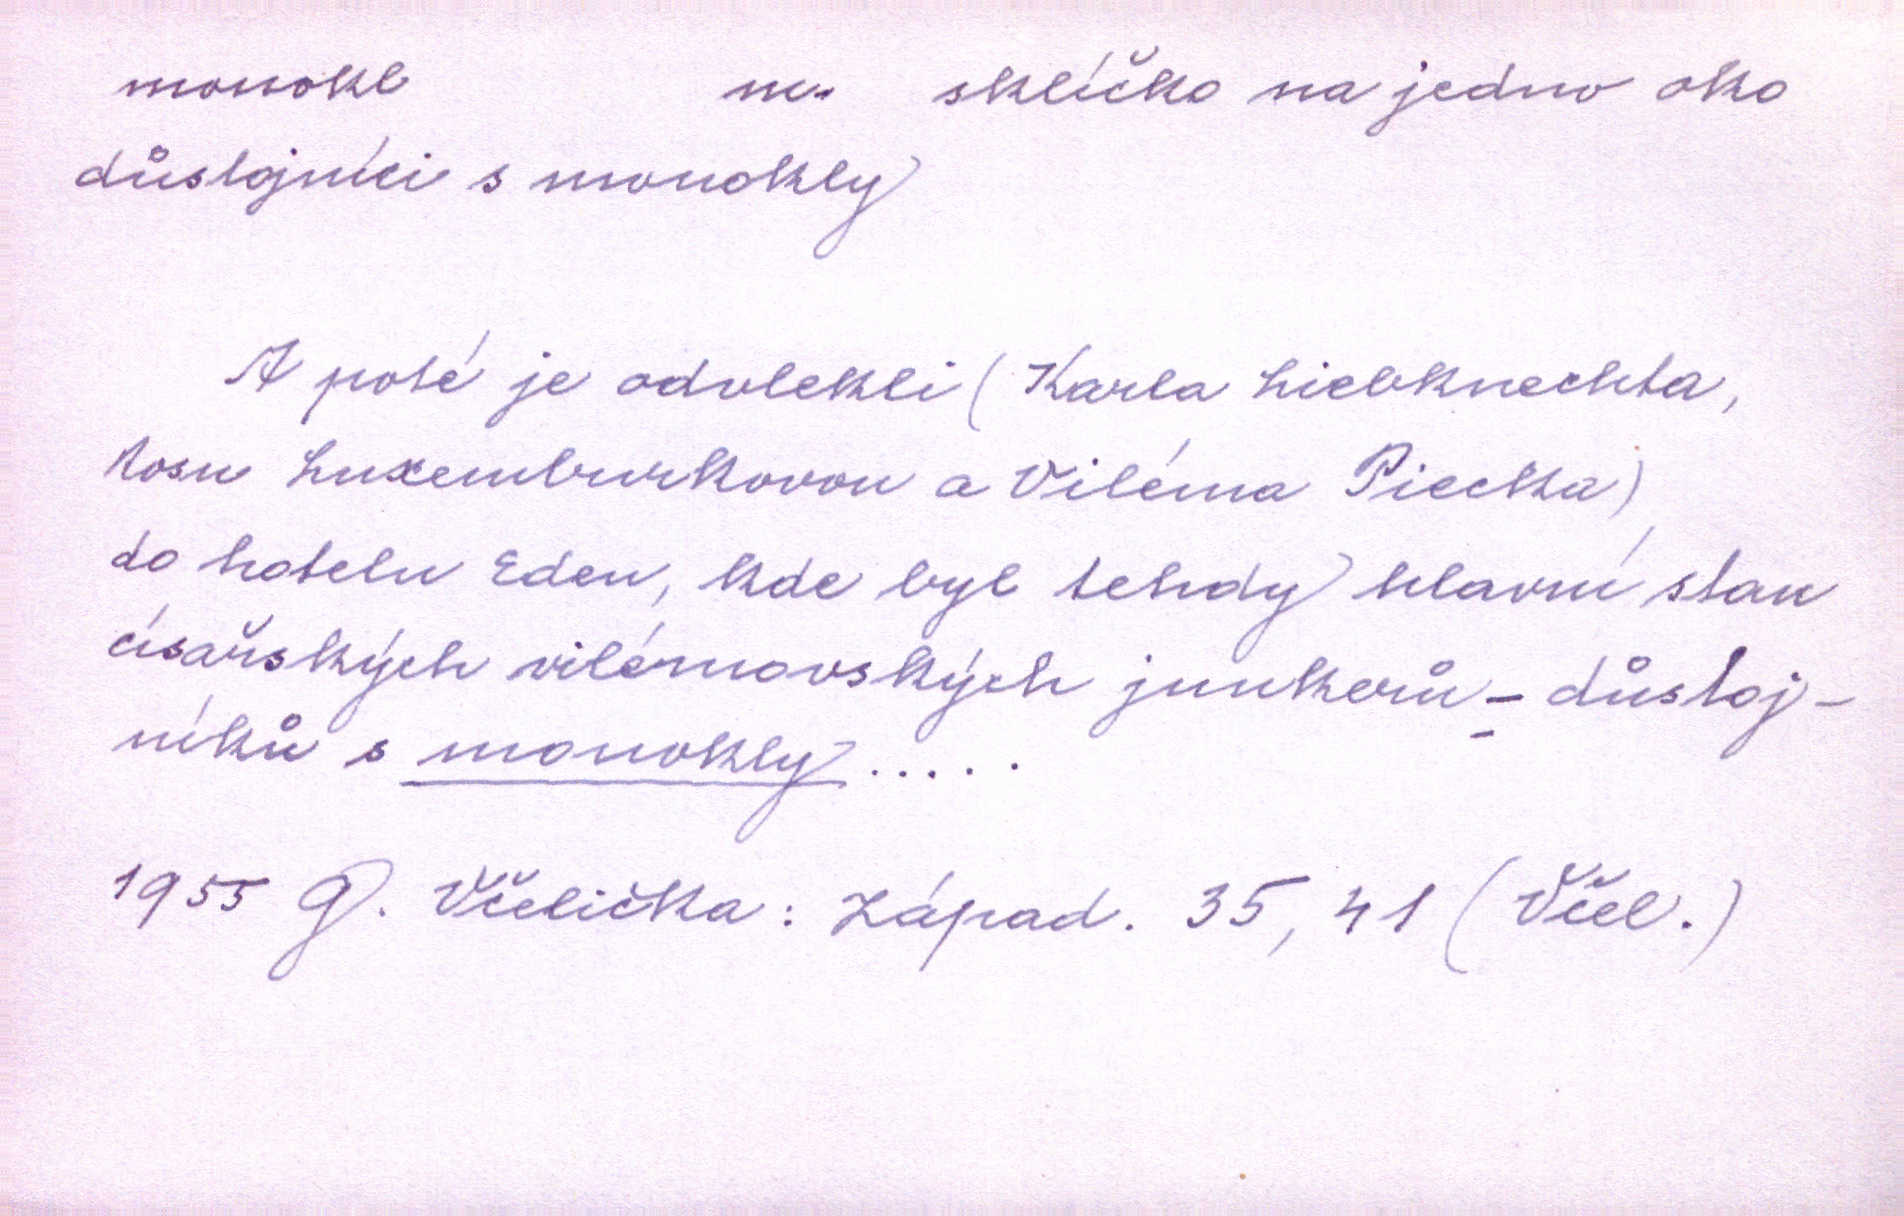 monokl m. sklíčko na jedno oko
důstojníci s monokly
A poté je odvlekli (Karla Liebknechta,
Rosu Luxemburkovou a Viléma Piecka)
do hotelu Eden, kde byl tehdy hlavní stan
císařských vilémovských junkerů - důstoj-
níků s monokly.....
1955 G. Včelička: Západ. 35, 41 (Včel.)